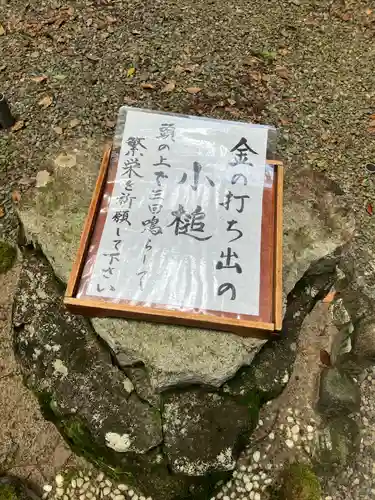 金の打ち出の
小槌
頭の上で三回鳴らして
繁栄を祈願して下さい